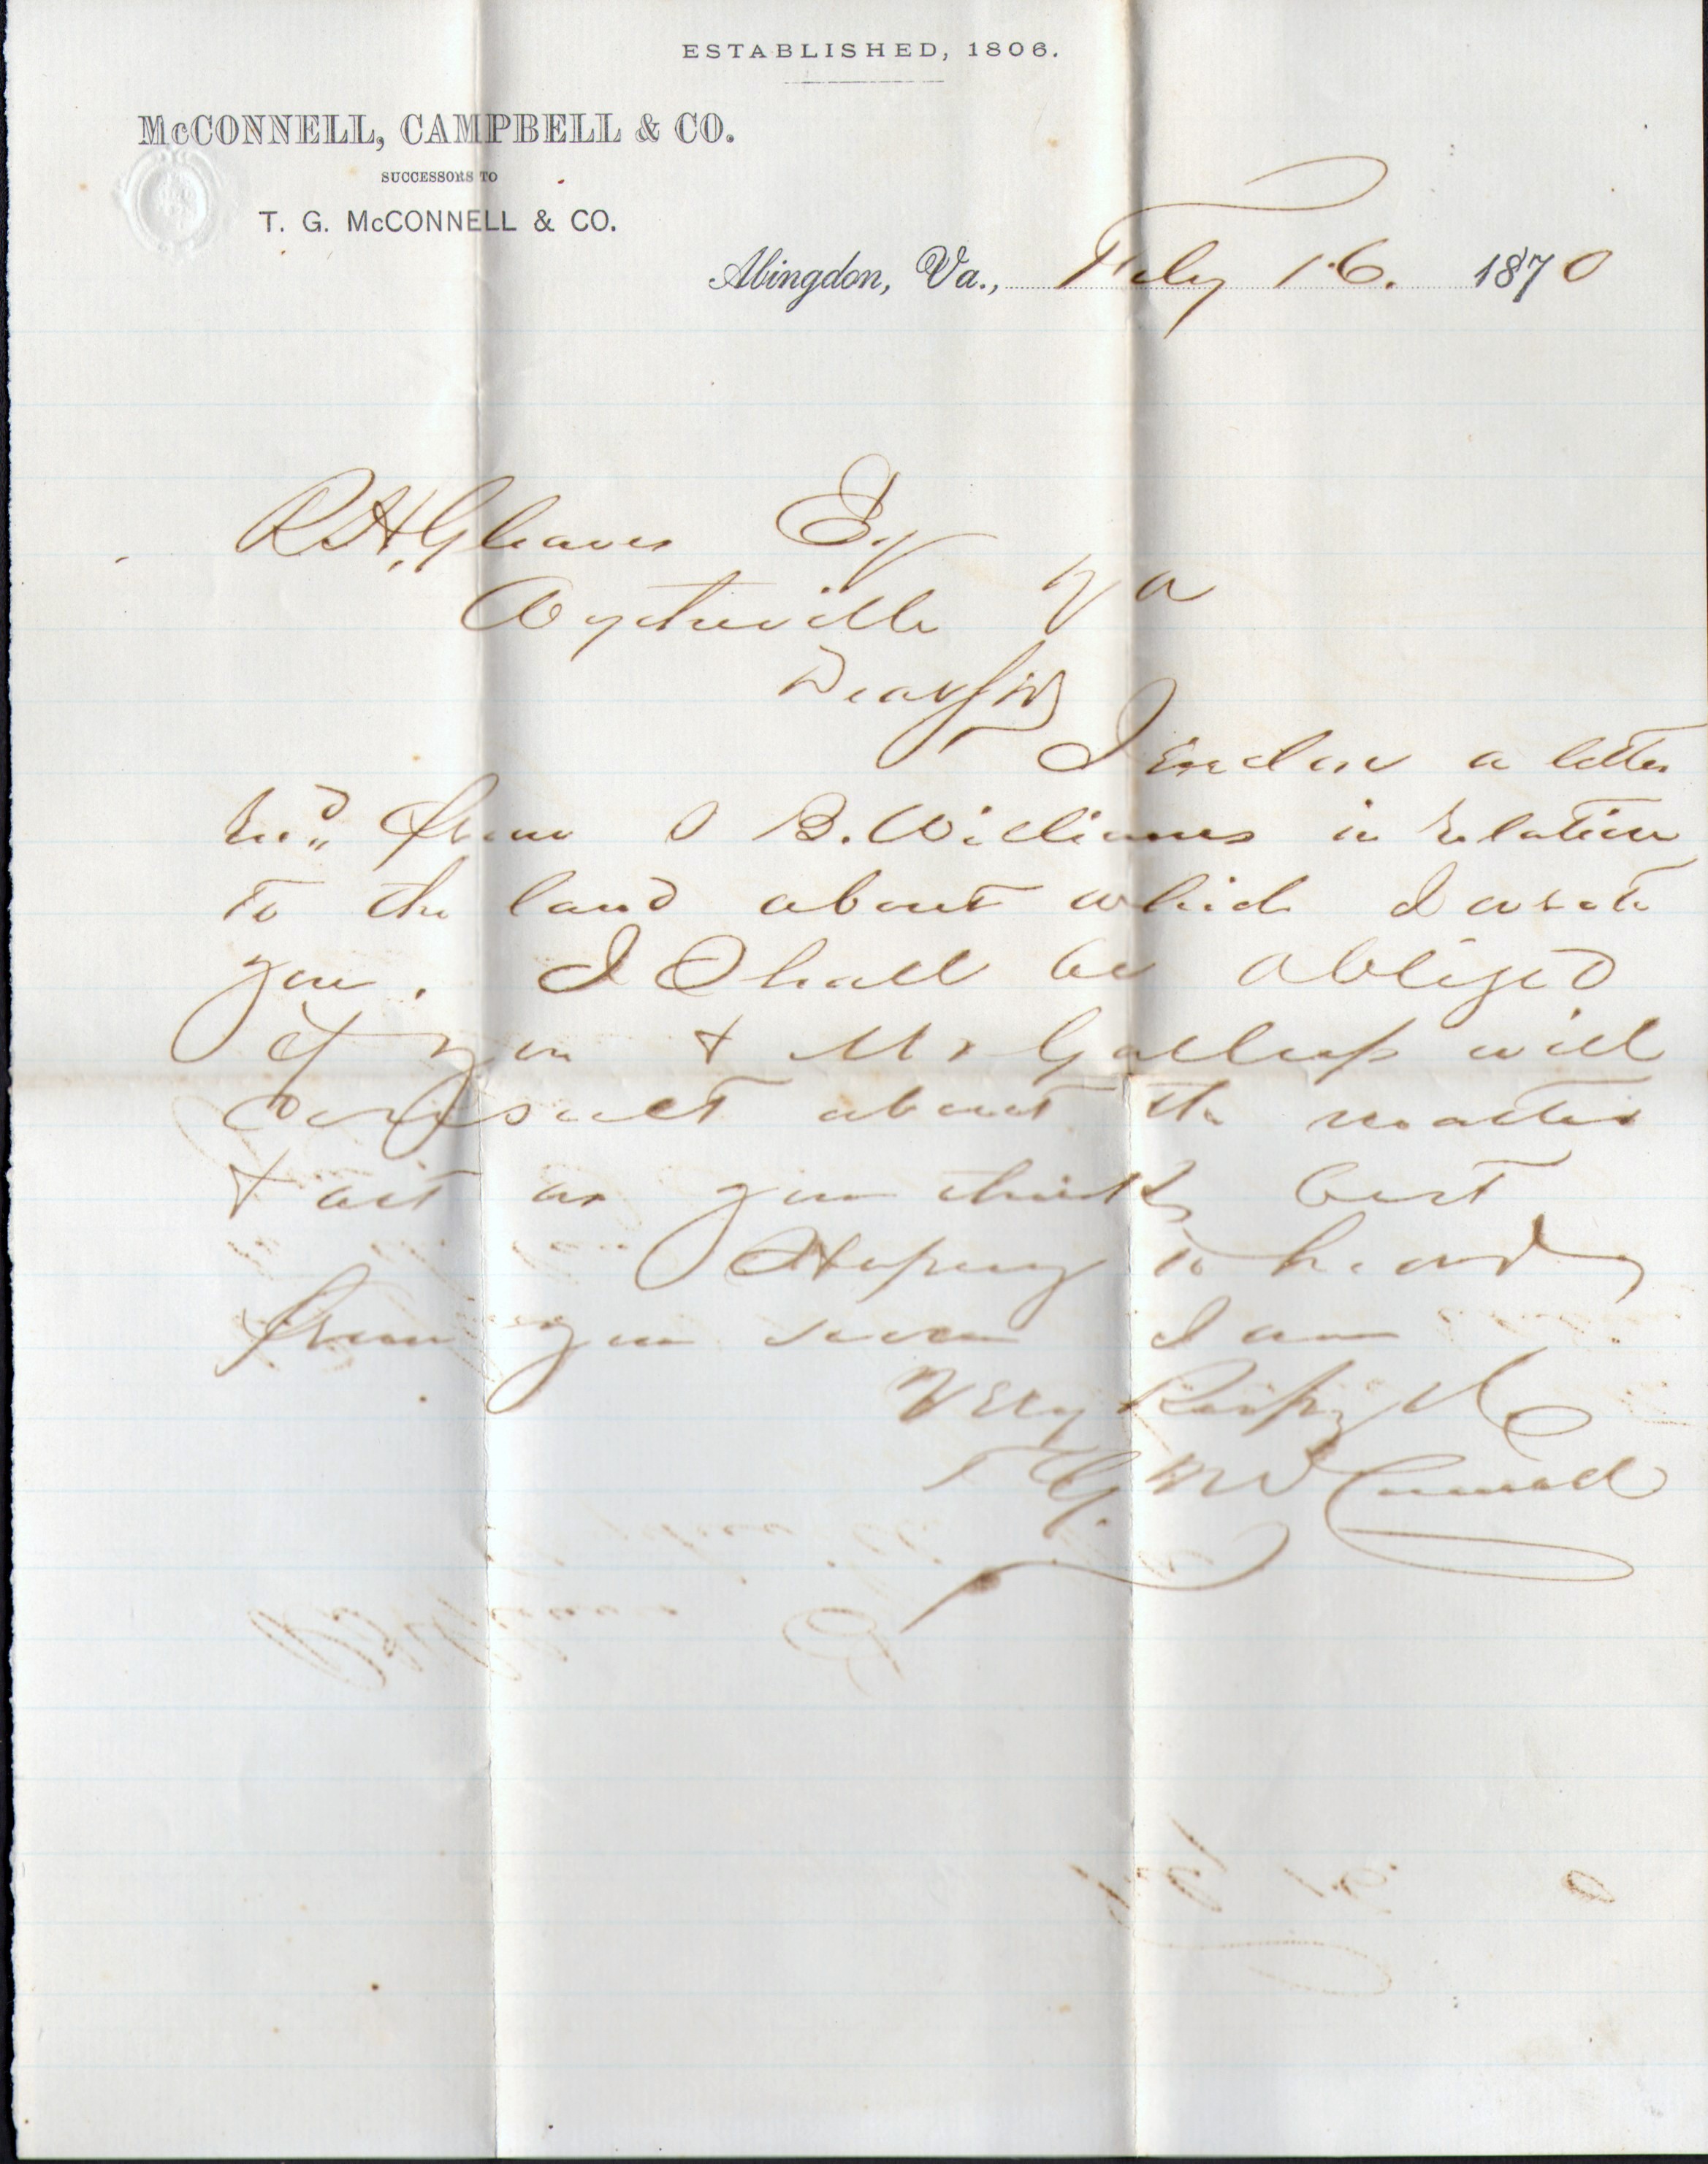 ESTABLISHED, 1806.
McCONNELL, CAMPBELL & CO.
SUCCESSORS TO
T. G. McCONNELL & CO.
Abingdon, Va., Feby 16. 1870
R H, Gleaves Esq
Wytheville Va
Dear Sir
I Enclose a letter
Recd from B. Williams in Relation
to the land about which I wrote
you. I Shall be obliged
if you & Mr Gallup will
consult about the matter
& act as you think best
Hoping to hear
from you soon I am
Very Respy
T G. McConnell